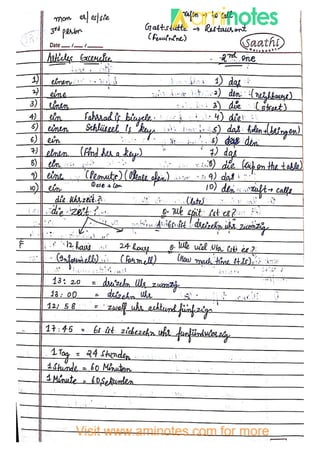 man er/es/sie
3rd person
Gaststätte → Restaurant
(Feminine)
aminotes
Saathi
Date
Articles Excercise
2nd one
1) einen 1) das
2) eine 2) den (neighbours)
3) einen 3) die (street)
4) ein Fahrrad is bicycle 4) die
5) einen Schlüssel is key 5) das
6) ein 6) den
7) einen (Find her a key) 7) das
8) ein 8) die (cup on the table)
9) eine (Remute) 9) das
10) ein 10) den ruft → calls
die Uhrzeit?
die Zeit? Q. Wie spät ist es?
A. Es ist dreizehn uhr zwanzig
12 hours 24 hours Q. Wie viel Uhr ist es?
(Informell) (Formell) (How much time it is)
13:20 = dreizehn Uhr zwanzig
18:00 = Uhr
12:58 = zwölf uhr achtundfünfzig
17:45 = Es ist siebzehn uhr
1 Tag = 24 Stunden
1 Stunde = 60 Minuten
1 Minute = 60 Sekunden
Visit www.aminotes.com for more